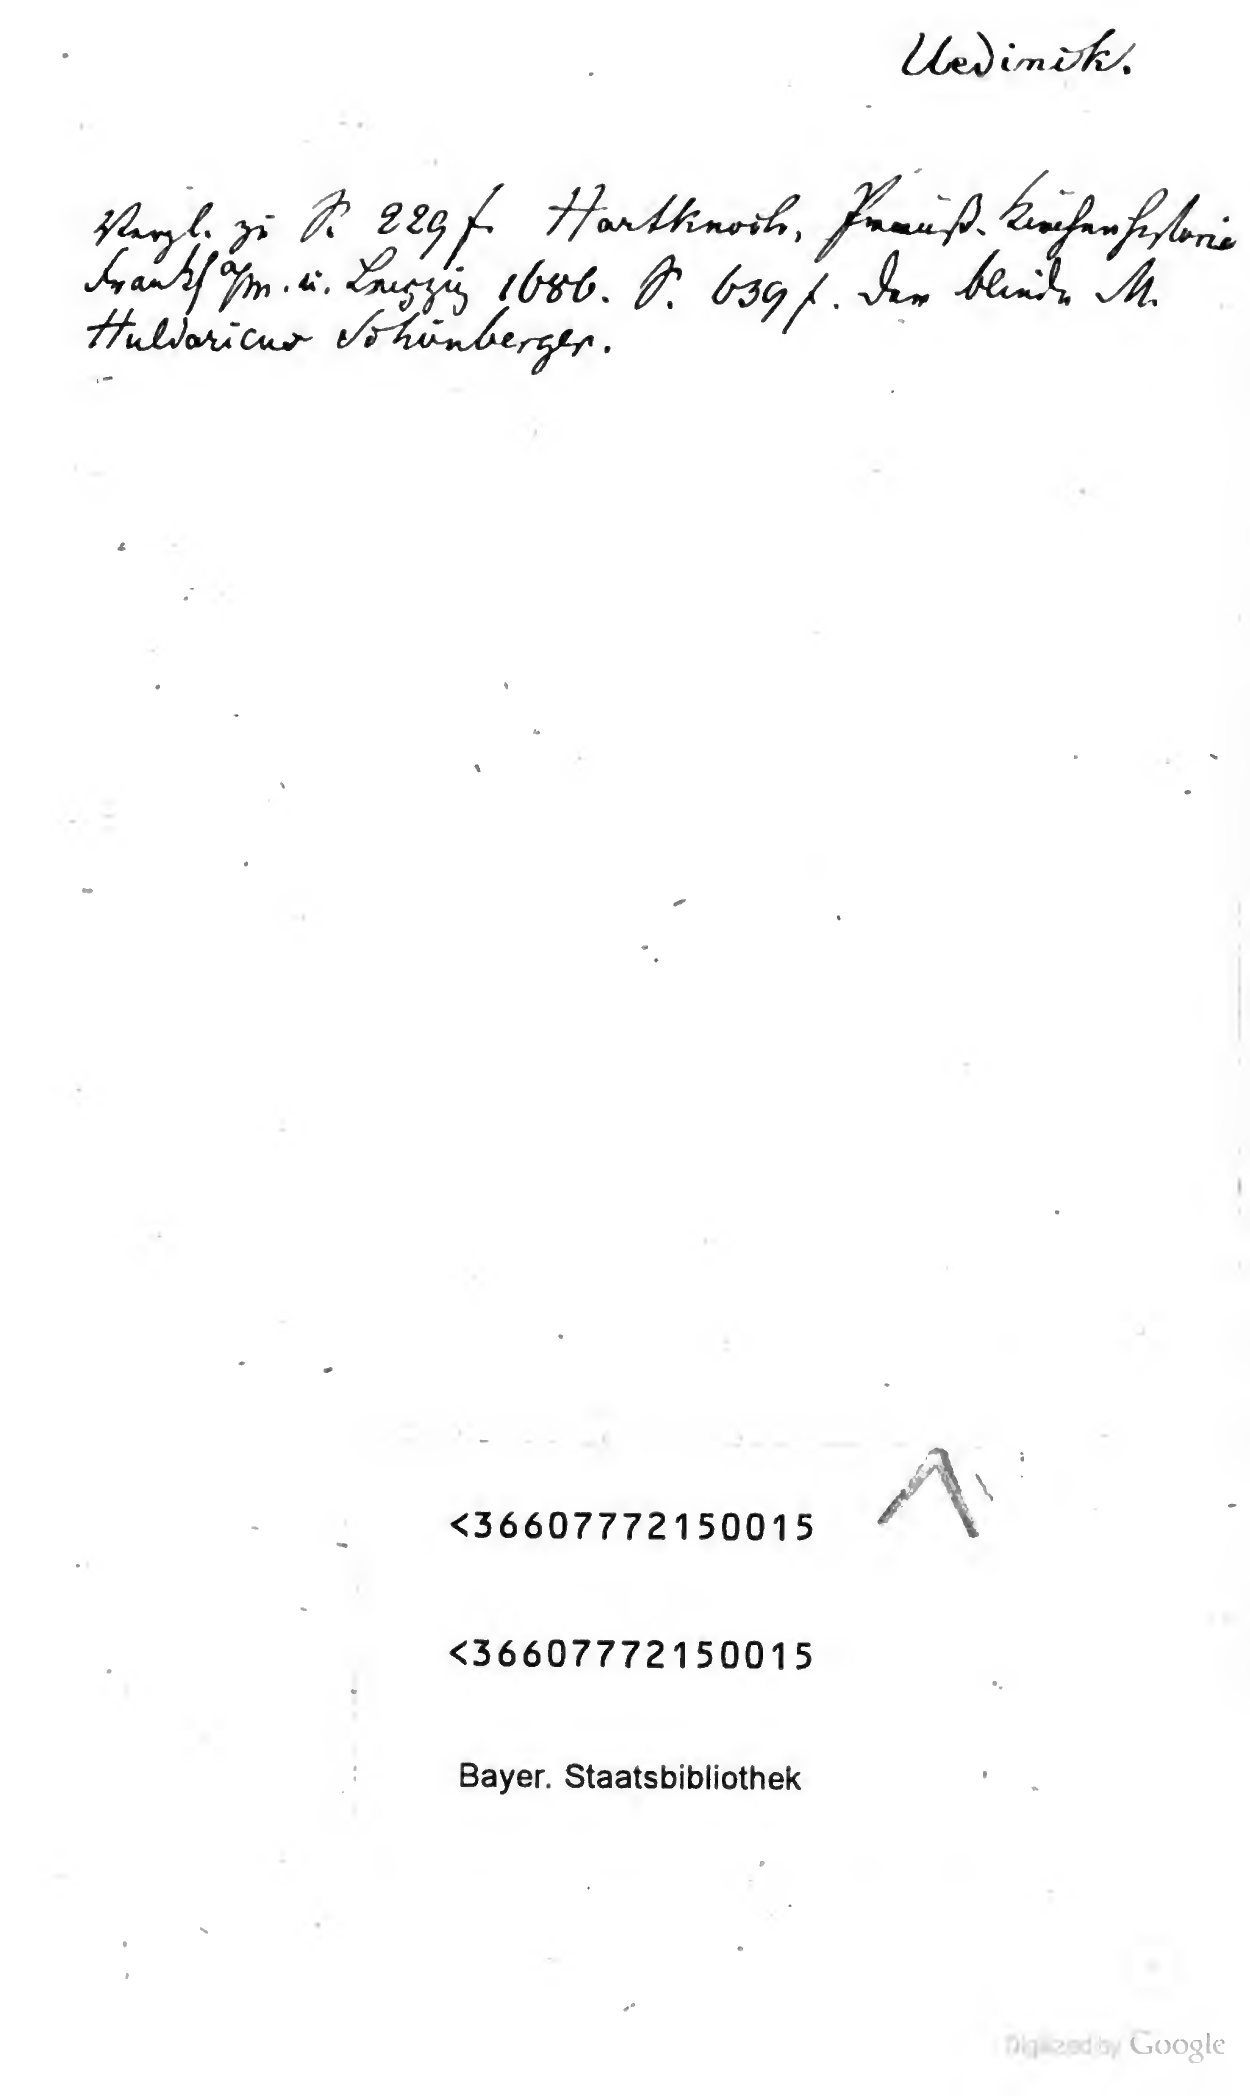 Vergl. zu S. 229 f. Hartknoch, Preuß. Kirchenhistorie
Frankf a/m. u. Leipzig 1686. S. 639 f. Der blinde M.
Huldaricus Schönberger.
<36607772150015
<36607772150015
Bayer. Staatsbibliothek
Digitized by Google